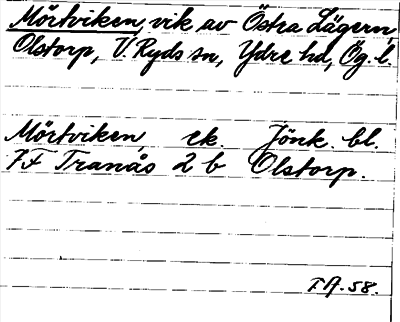 Mörtviken, vik av Östra Lägern,
Olstorp, V. Ryds sn, Ydre hd, Ög. l.
Mörtviken, ek. Jönk. bl.
7F Tranås 2 b Olstorp.
TA. 58.